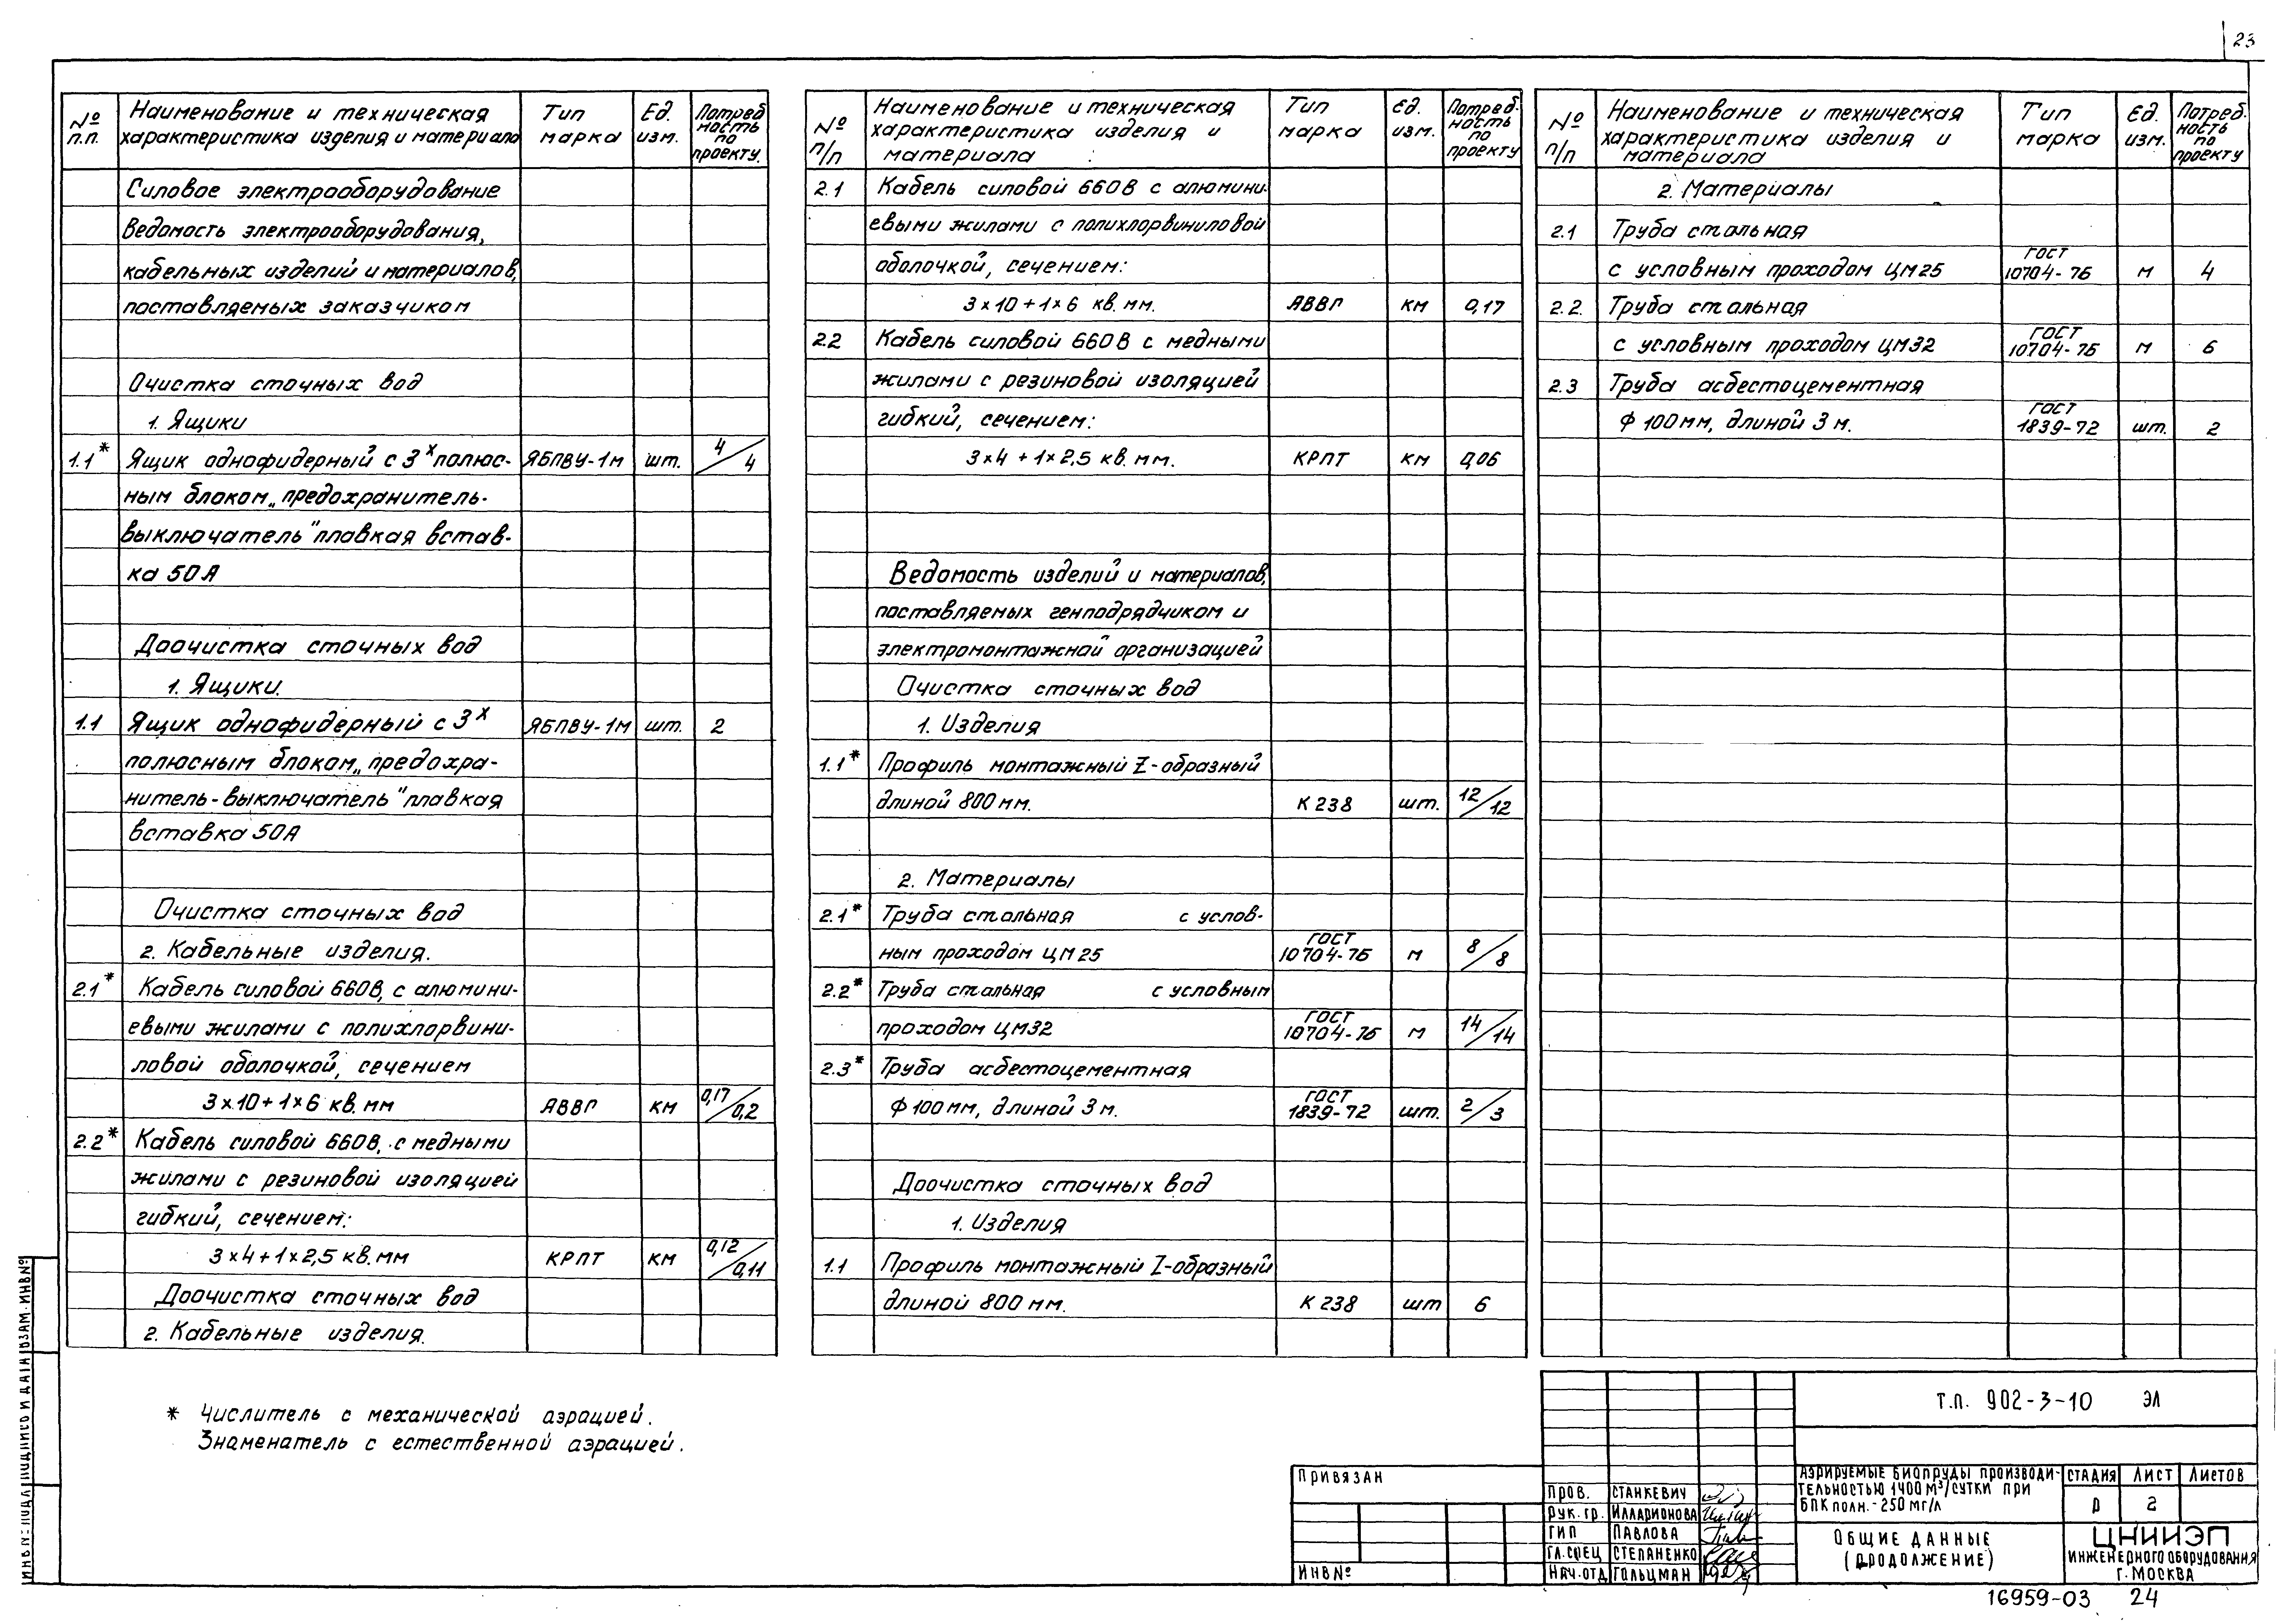 23
№ п.п. Наименование и техническая характеристика изделия и материала Тип марка Ед. изм. Потребность по проекту.
Силовое электрооборудование
Ведомость электрооборудования,
кабельных изделий и материалов,
поставляемых заказчиком
Очистка сточных вод
1. Ящики
1.1* Ящик однофидерный с 3х полюс- ЯБПВУ-1м шт. 4/4
ным блоком „предохранитель-
выключатель" плавкая встав-
ка 50А
Доочистка сточных вод
1. Ящики.
1.1 Ящик однофидерный с 3х ЯБПВУ-1м шт. 2
полюсным блоком „предохра-
нитель-выключатель" плавкая
вставка 50А
Очистка сточных вод
2. Кабельные изделия.
2.1* Кабель силовой 660В, с алюмини-
евыми жилами с полихлорвини-
ловой оболочкой, сечением
3×10+1×6 кв. мм АВВГ км 0,17/0,2
2.2* Кабель силовой 660В, с медными
жилами с резиновой изоляцией
гибкий, сечением:
3×4+1×2,5 кв. мм КРПТ км 0,12/0,11
Доочистка сточных вод
2. Кабельные изделия.
№ п/п Наименование и техническая характеристика изделия и материала Тип марка Ед. изм. Потребность по проекту
2.1 Кабель силовой 660В с алюмини-
евыми жилами с полихлорвиниловой
оболочкой, сечением:
3×10+1×6 кв. мм. АВВГ км 0,17
2.2 Кабель силовой 660В с медными
жилами с резиновой изоляцией
гибкий, сечением:
3×4+1×2,5 кв. мм. КРПТ км 0,06
Ведомость изделий и материалов,
поставляемых генподрядчиком и
электромонтажной организацией
Очистка сточных вод
1. Изделия
1.1* Профиль монтажный Z-образный
длиной 800 мм. К 238 шт. 12/12
2. Материалы
2.1* Труба стальная с услов-
ным проходом ЦМ25 ГОСТ 10704-76 м 8/8
2.2* Труба стальная с условным
проходом ЦМ32 ГОСТ 10704-76 м 14/14
2.3* Труба асбестоцементная
ф 100мм, длиной 3 м. ГОСТ 1839-72 шт. 2/3
Доочистка сточных вод
1. Изделия
1.1 Профиль монтажный Z-образный
длиной 800 мм. К 238 шт 6
№ п/п Наименование и техническая характеристика изделия и материала Тип марка Ед. изм. Потребность по проекту
2. Материалы
2.1 Труба стальная
с условным проходом ЦМ25 ГОСТ 10704-76 м 4
2.2. Труба стальная
с условным проходом ЦМ32 ГОСТ 10704-76 м 6
2.3 Труба асбестоцементная
ф 100мм, длиной 3 м. ГОСТ 1839-72 шт. 2
* Числитель с механической аэрацией.
Знаменатель с естественной аэрацией.
ИНВ№ ПОДЛ ПОДПИСЬ И ДАТА ВЗАМ. ИНВ№
ПРИВЯЗАН
ИНВ№
ПРОВ. СТАНКЕВИЧ
РУК. ГР. ИЛЛАРИОНОВА
ГИП ПАВЛОВА
ГЛ. СПЕЦ СТЕПАНЕНКО
НАЧ. ОТД ГОЛЬЦМАН
Т.П. 902-3-10 ЭЛ
АЭРИРУЕМЫЕ БИОПРУДЫ ПРОИЗВОДИ-
ТЕЛЬНОСТЬЮ 1400 М³/СУТКИ ПРИ
БПК ПОЛН. - 250 МГ/Л
СТАДИЯ ЛИСТ ЛИСТОВ
Р 2
ОБЩИЕ ДАННЫЕ
(ПРОДОЛЖЕНИЕ)
ЦНИИЭП
ИНЖЕНЕРНОГО ОБОРУДОВАНИЯ
Г. МОСКВА
16959-03 24